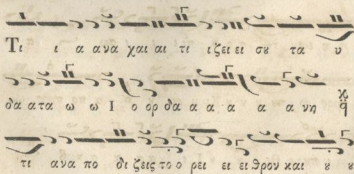 Τι ι α ανα χαι αι τι ι ζει ει σο υ τα υ
δα ατα ω ω Ι ο ορ δα α α α α α νη
τι ανα πο δι ζεις το ο ρει ει ει θρον και υ υ